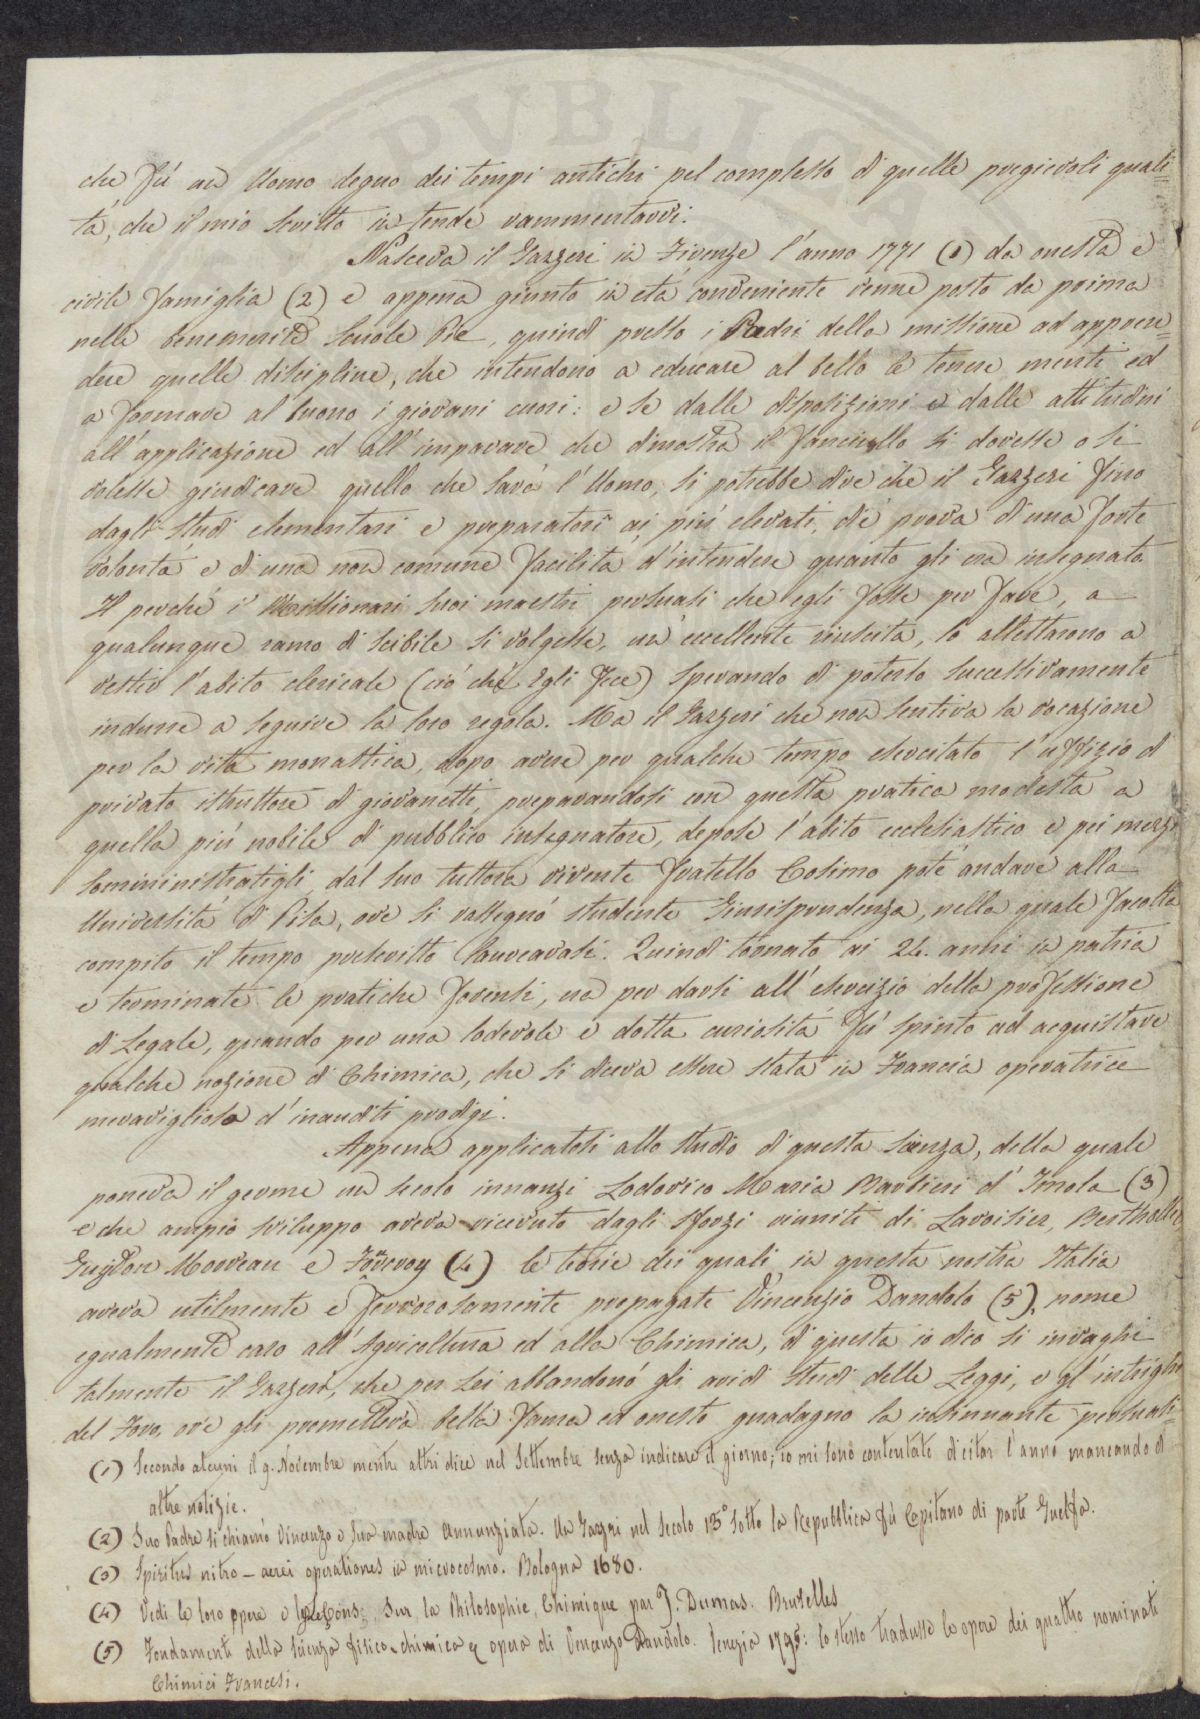 PVBLICA
che fù un Uomo degno dei tempi antichi pel complesso di quelle pregievoli quali=
tà, che il mio scritto intende rammentarvi.
Nasceva il Gazzeri in Firenze l'anno 1771 (1) da onesta e
civile famiglia (2) e appena giunto in età conveniente venne posto da prima
nelle benemerite Scuole Pie, quindi presso i Padri della missione ad appren=
dere quelle discipline, che intendono a educare al bello le tenere menti ed
a formare al buono i giovani cuori: e se dalle disposizioni e dalle attitudini
all'applicazione ed all'imparare che dimostra il fanciullo si dovesse o si
volesse giudicare quello che sarà l'Uomo, si potrebbe dire che il Gazzeri fino
dagli studi elementari e preparatori ai più elevati, diè prova di una forte
volontà e di una non comune facilità d'intendere quanto gli era insegnato.
Il perchè i Missionari suoi maestri persuasi che egli fosse per fare, a
qualunque ramo di scibile si volgesse, un'eccellente riuscita, lo allettarono a
vestir l'abito clericale (ciò che Egli fece) sperando di poterlo successivamente
indurre a seguire la loro regola. Ma il Gazzeri che non sentiva la vocazione
per la vita monastica, dopo avere per qualche tempo esercitato l'uffizio di
privato istruttore di giovanetti, preparandosi con questa pratica modesta a
quella più nobile di pubblico insegnatore, depose l'abito ecclesiastico e pei mezzi
somministratigli dal suo tuttora vivente fratello Cosimo potè andare alla
Università di Pisa, ove si rassegnò studente Giurisprudenza, nella quale facoltà
compito il tempo prescritto laureavasi. Quindi tornato ai 24. anni in patria
e terminate le pratiche forensi, era per darsi all'esercizio della professione
di Legale, quando per una lodevole e dotta curiosità fù spinto ad acquistare
qualche nozione di Chimica, che si diceva essere stata in Francia operatrice
meravigliosa d'inauditi prodigi.
Appena applicatosi allo studio di questa scienza, della quale
poneva il germe un secolo innanzi Lodovico Maria Barbieri d'Imola (3)
e che ampio sviluppo aveva ricevuto dagli sforzi riuniti di Lavoisier, Berthollet
Guyton Morveau e Fourcroy (4) le teorie dei quali in questa nostra Italia
aveva utilmente e fervorosamente propagate Vincenzio Dandolo (5), nome
egualmente caro all'Agricoltura ed alla Chimica, di questa io dico si invaghì
talmente il Gazzeri, che per Lei abbandonò gli aridi studi delle Leggi, e gl'intrighi
del Foro, ove gli prometteva bella fama ed onesto guadagno la insinuante persuasi=
(1) Secondo alcuni il 9. Novembre mentre altri dice nel Settembre senza indicare il giorno; io mi sono contentato di citar l'anno mancando di
altre notizie.
(2) Suo Padre si chiamò Vincenzo e sua madre Annunziata. Un Gazzeri nel Secolo 13° sotto la Repubblica fù Capitano di parte Guelfa.
(3) Spiritus nitro-aerei operationes in microcosmo. Bologna 1680.
(4) Vedi le loro opere e Leçons sur la Philosophie Chimique par J. Dumas. Bruxelles
(5) Fondamenti della Scienza fisico-chimica opera di Vincenzo Dandolo. Venezia 1795: lo stesso tradusse le opere dei quattro nominati
Chimici Francesi.